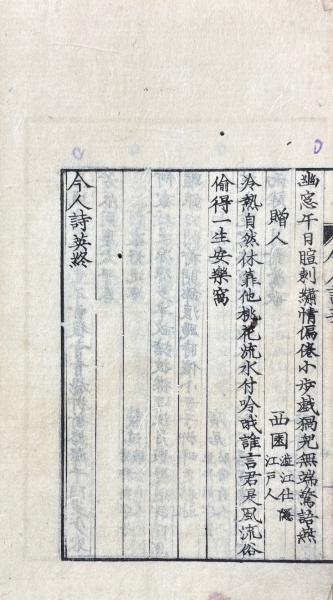 幽窓午日暄刺繡情偏倦小步戲猧兒無端驚語燕
贈人 西園 澁江仕隱 江戸人
冷熱自然休靠他桃花流水付吟哦誰言君是風流俗
偷得一生安樂窩
今人詩英終